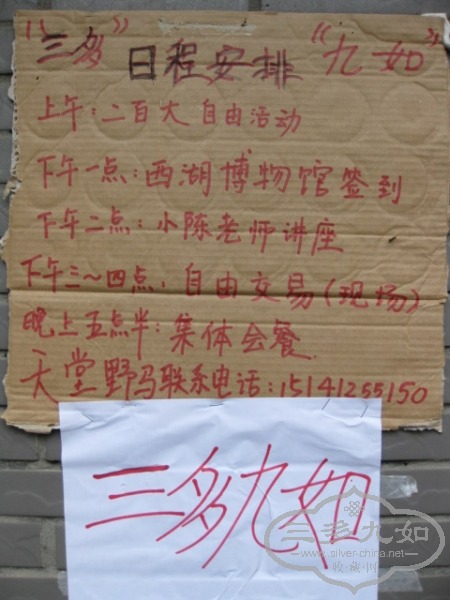 “三多” 日程安排 “九如”
上午：二百大 自由活动
下午一点：西湖博物馆签到
下午二点：小陈老师讲座
下午三～四点：自由交易（现场）
晚上五点半：集体会餐
天堂野马联系电话：15141255150
三多九如
三多九如
www.silver-china.net
收藏网